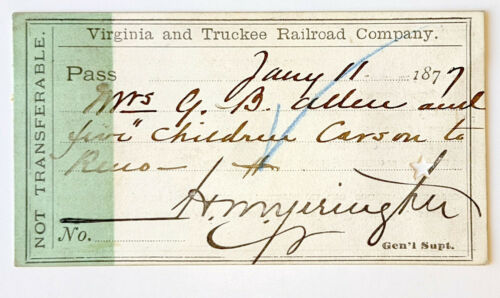 Virginia and Truckee Railroad Company.
NOT TRANSFERABLE.
Pass Jany 11 1877
Mrs G. B. Allen and
five" children Carson to
Reno—
H. M. Yerington
No.
Gen'l Supt.